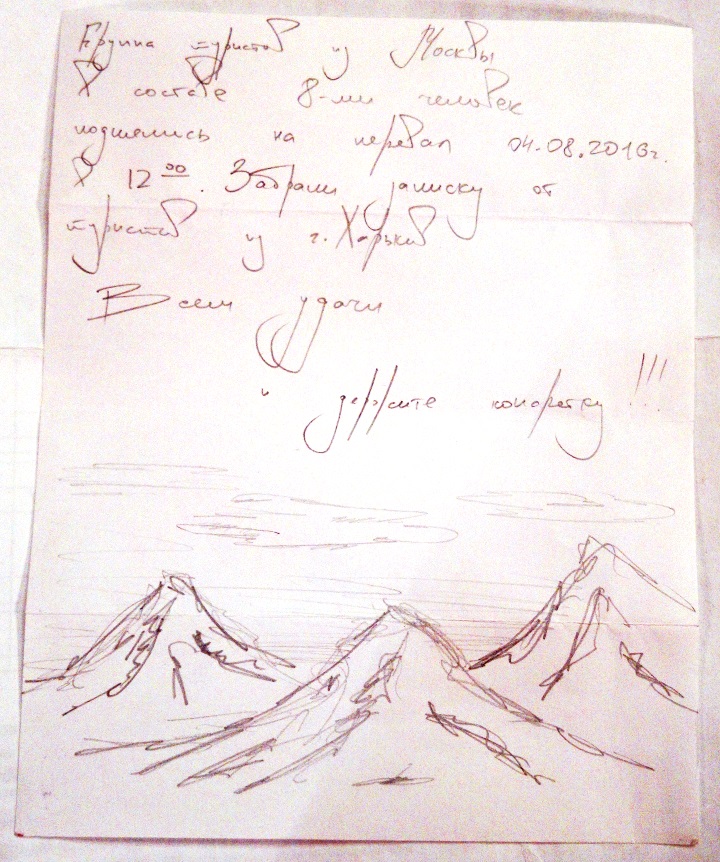 Группа туристов из Москвы
В составе 8-ми человек
поднялись на перевал 04.08.2016г.
В 12 00. Забрали записку от
туристов из г. Харьков
Всем удачи
и держите конфетку !!!